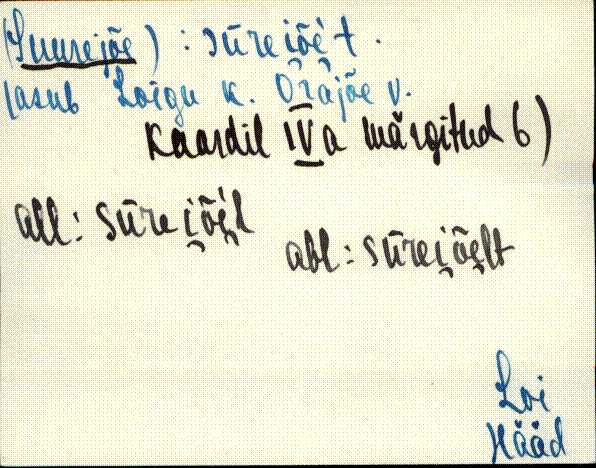 (Suurejõe) : sūrei̯õe̯'t.
asub Loigu k. Orajõe v.
Kaardil IVa märgitud 6)
all: sūrei̯õe̯'l
abl: sūrei̯õe̯lt
Loi
Hääd